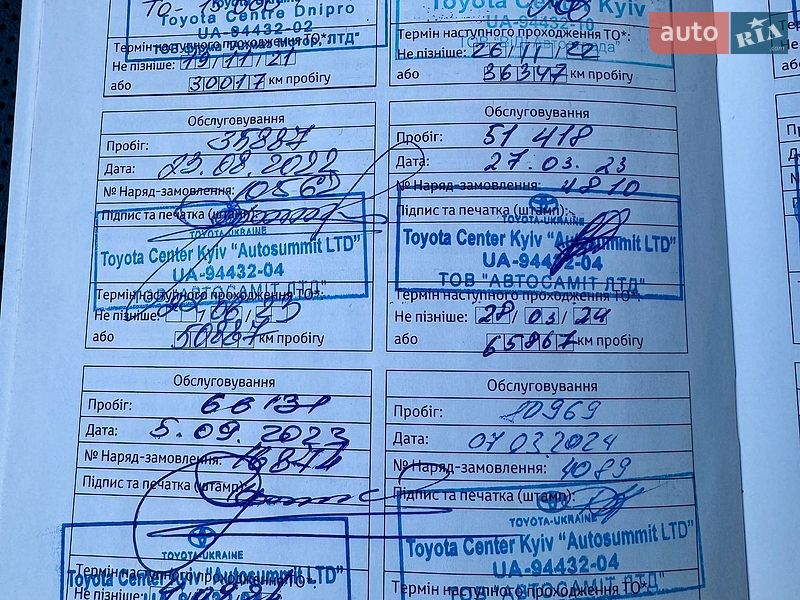 Toyota Centre Dnipro
UA-94432-02
Термін наступного проходження ТО*:
Не пізніше: 19/11/21
або 30017 км пробігу
Kyiv
UA-94432-10
Термін наступного проходження ТО*:
Не пізніше: 26/11/22
або 36347 км пробігу
auto RIA .com
Обслуговування
Пробіг: 35887
Дата: 23.08.2022
№ Наряд-замовлення:
Підпис та печатка (штамп):
TOYOTA-UKRAINE
Toyota Center Kyiv "Autosummit LTD"
UA-94432-04
ТОВ "АВТОСАМІТ ЛТД"
Термін наступного проходження ТО*:
Не пізніше:
або 50887 км пробігу
Обслуговування
Пробіг: 51 418
Дата: 27.03.23
№ Наряд-замовлення: 4810
Підпис та печатка (штамп):
TOYOTA-UKRAINE
Toyota Center Kyiv "Autosummit LTD"
UA-94432-04
ТОВ "АВТОСАМІТ ЛТД"
Термін наступного проходження ТО*:
Не пізніше: 28/03/24
або 65867 км пробігу
Обслуговування
Пробіг: 66131
Дата: 5.09.2023
№ Наряд-замовлення:
Підпис та печатка (штамп):
TOYOTA-UKRAINE
Toyota Center Kyiv "Autosummit LTD"
Термін наступного проходження ТО*:
Не пізніше:
Обслуговування
Пробіг: 80969
Дата: 07.03.2024
№ Наряд-замовлення: 4089
Підпис та печатка (штамп):
TOYOTA-UKRAINE
Toyota Center Kyiv "Autosummit LTD"
UA-94432-04
ТОВ "АВТОСАМІТ ЛТД"
Термін наступного проходження ТО*: